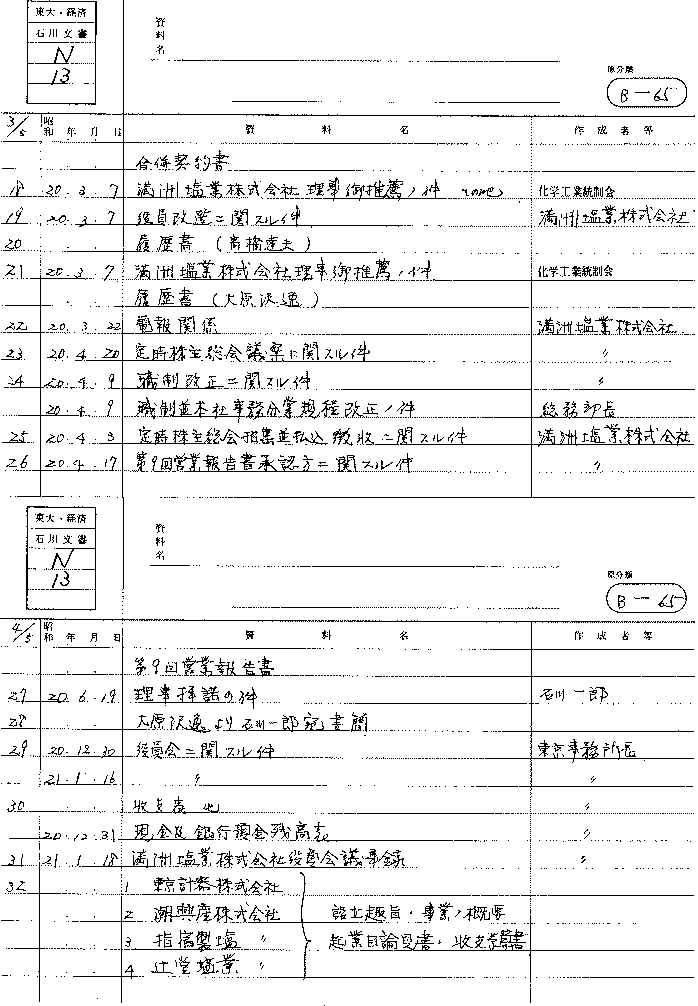 東大・経済
石川文書
N
13
資料名
原分類
B-65
3/5 昭和 年 月 日 資料名 作成者等
合併契約書
18 20.3.7 満洲塩業株式会社理事御推薦ノ件 化学工業統制会
19 20.3.7 役員改選ニ関スル件 満洲塩業株式会社
20 履歴書(高橋達夫)
21 20.3.7 満洲塩業株式会社理事御推薦ノ件 化学工業統制会
履歴書(大原
22 20.3.22 電報関係 満洲塩業株式会社
23 20.4.20 定時株主総会議案ニ関スル件 〃
24 20.4.9 職制改正ニ関スル件 〃
20.4.9 職制並本社事務分業規程改正ノ件 総務部長
25 20.4.3 定時株主総会招集並払込徴収ニ関スル件 満洲塩業株式会社
26 20.4.17 第9回営業報告書承認方ニ関スル件 〃
東大・経済
石川文書
N
13
資料名
原分類
B-65
4/5 昭和 年 月 日 資料名 作成者等
第9回営業報告書
27 20.6.19 理事受諾の件 石川一郎
28 大原 より石川一郎宛書簡
29 20.12.30 役員会ニ関スル件 東京事務所長
21.1.16 〃 〃
30 収支表 他 〃
20.12.31 現金及銀行預金残高表 〃
31 21.1.18 満洲塩業株式会社役員会議事録 〃
32 1 東京計器株式会社
2 潮興産株式会社 設立趣旨・事業ノ概要
3 指宿製塩 〃 起業目論見書・収支予算書
4 辻堂塩業 〃